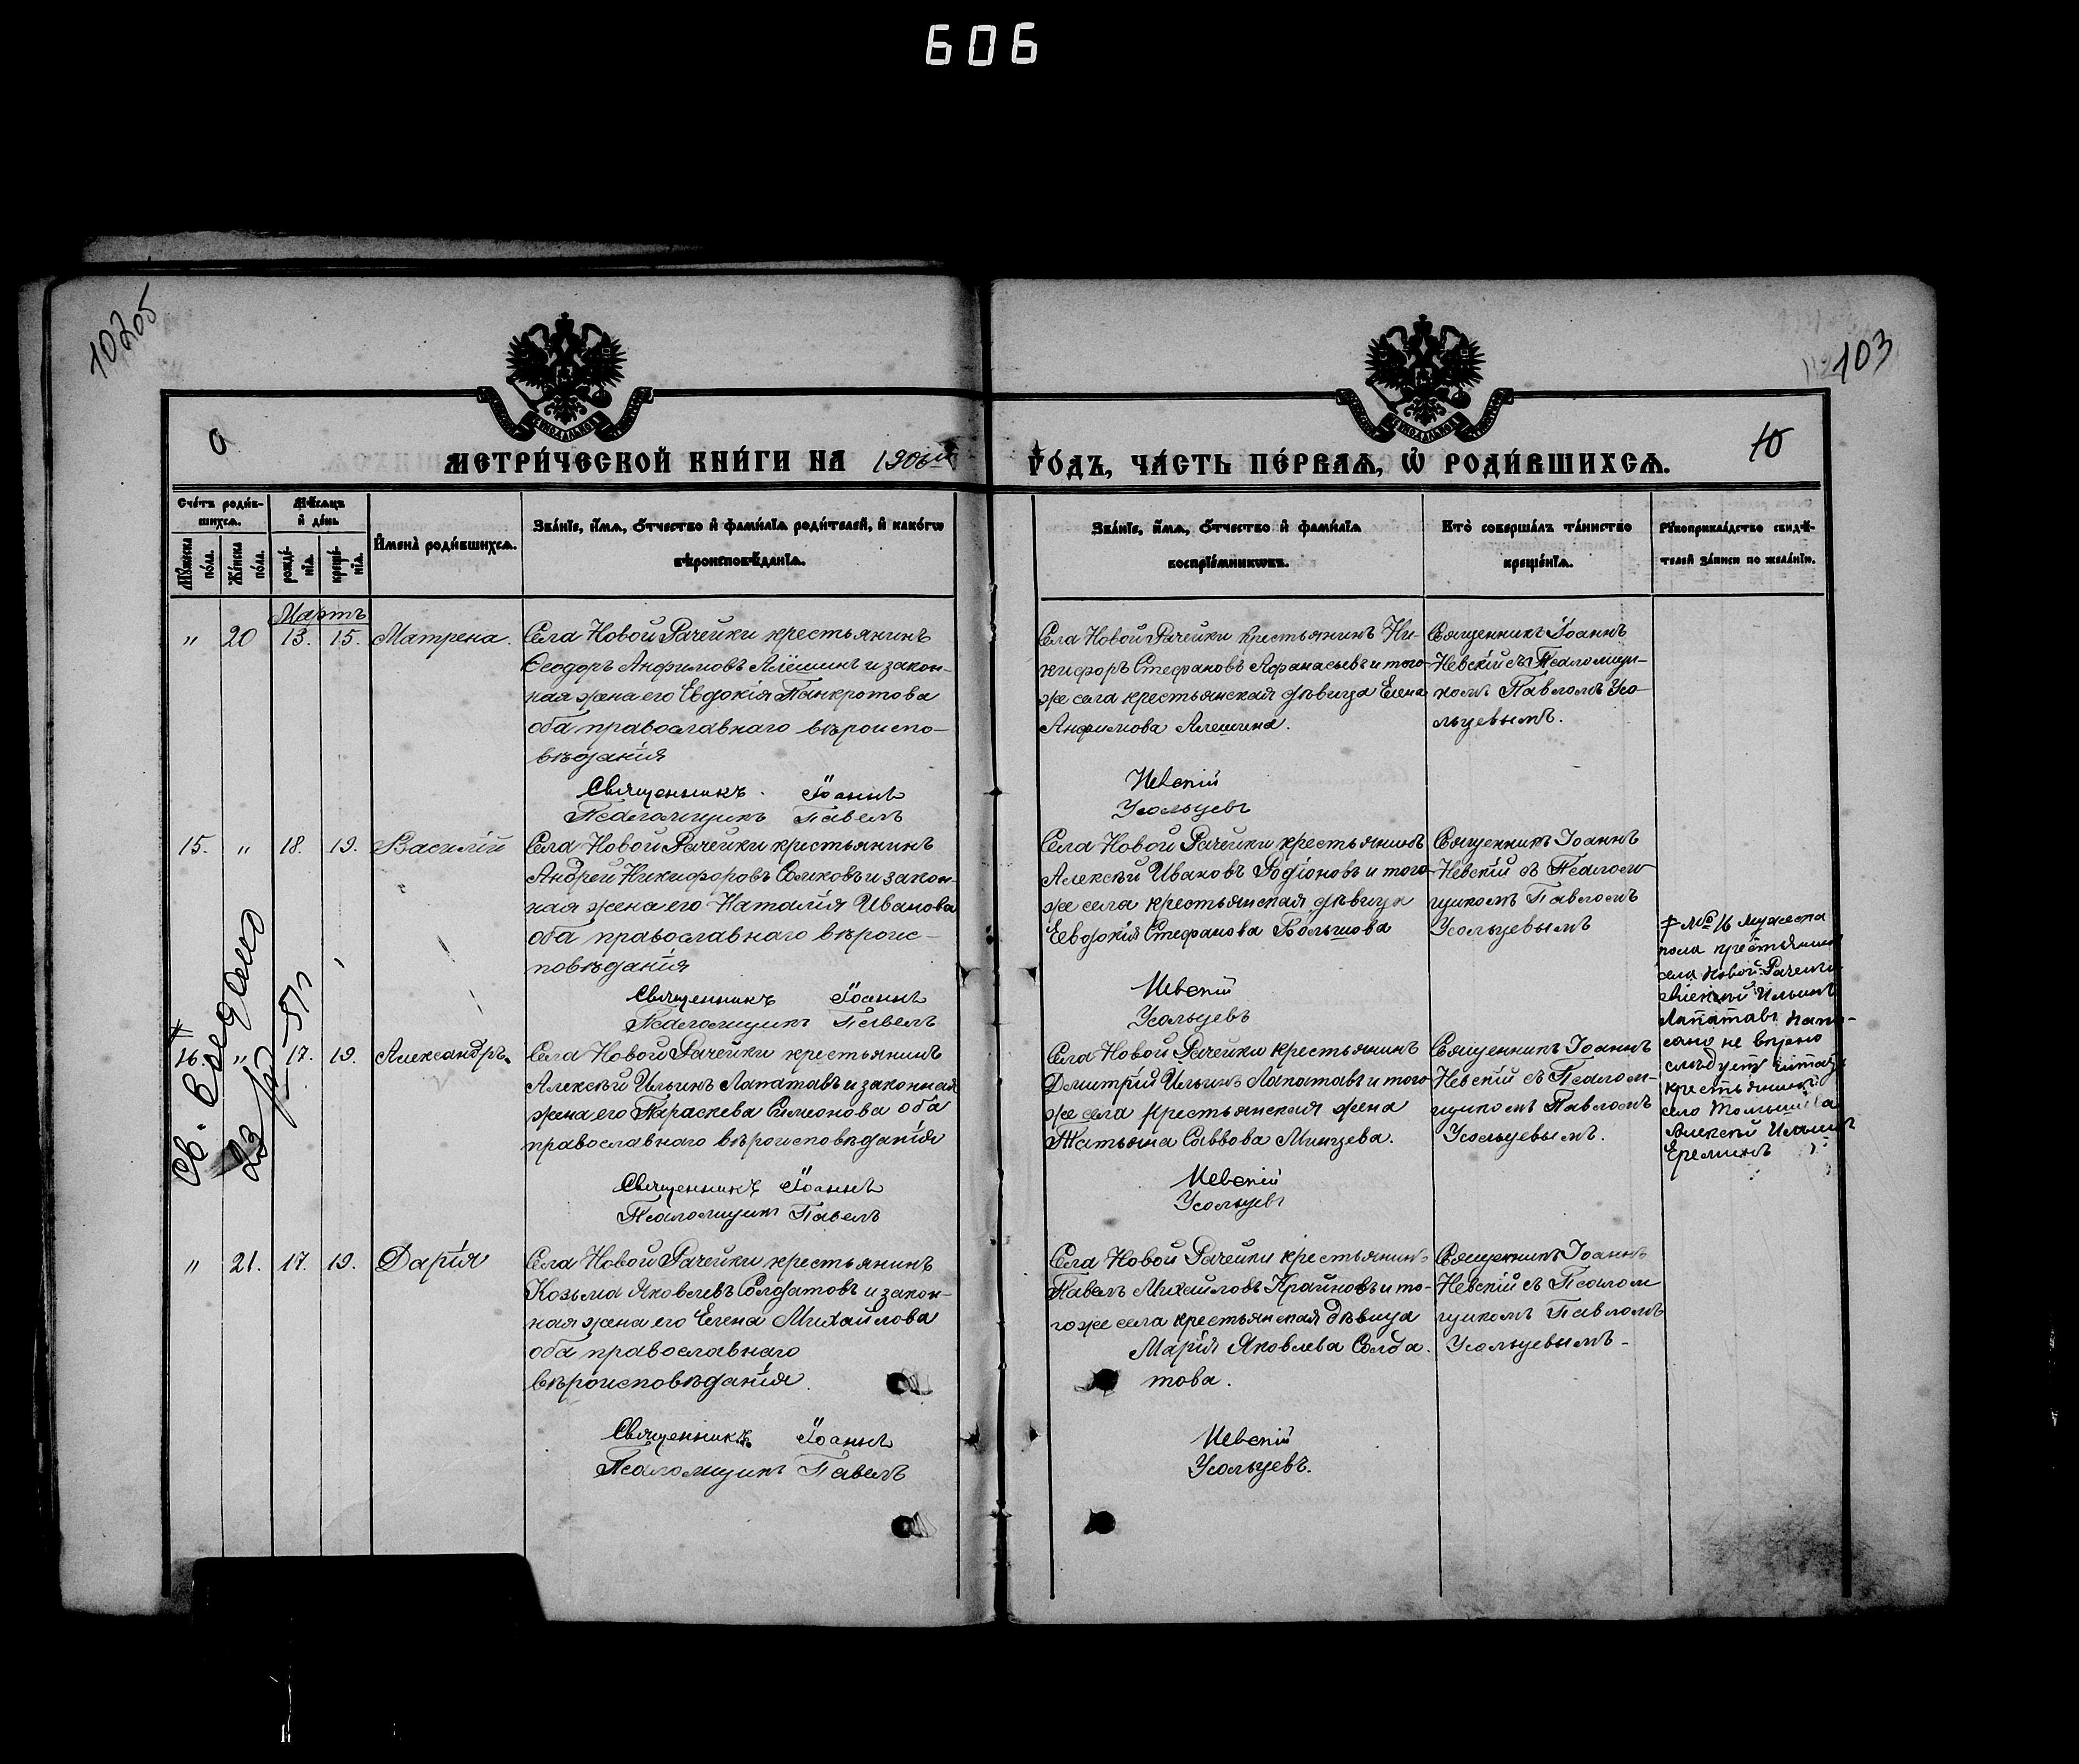 606
10205
103
10
МЕТРИ́ЧЕСКОЙ КНИ́ГИ НА 1906й
ГО́ДЪ, ЧА́СТЬ ПЕ́РВАѦ, Ѡ҆ РОДИ́ВШИХСѦ.
Сче́тъ роди́в-
шихсѧ.
Му́жеска
по́ла.
Же́нска
по́ла.
Мѣ́сѧцъ
и҆ де́нь
рожде́-
нїѧ.
креще́-
нїѧ.
И҆мена̀ роди́вшихсѧ.
Зва́нїе, и҆́мѧ, ѻ҆́тчество и҆ фами́лїѧ роди́телей, и҆ како́гѡ
вѣроисповѣ́данїѧ.
Зва́нїе, и҆́мѧ, ѻ҆́тчество и҆ фами́лїѧ
воспрїе́мникѡвъ.
Кто̀ соверша́лъ та́инство
креще́нїѧ.
Рꙋкоприкла́дство свидѣ́-
телей за́писи по жела́нїю.
Мартъ
" 20 13. 15. Матрена.
Села Новой Рачейки крестьянинъ
Ѳеодоръ Анфимовъ Алёшинъ и закон-
ная жена его Евдокія Панкротова
оба православнаго вѣроиспо-
вѣданія
Священникъ Іоаннъ
Псаломщикъ Павелъ
Села Новой Рачейки крестьянинъ Ни-
кифоръ Стефановъ Афанасьевъ и того
же села крестьянская дѣвица Елена
Анфимова Алешина.
Невскій
Усольцевъ
Священникъ Іоаннъ
Невскій съ Псаломщи-
комъ Павломъ Усо-
льцевымъ.
15. " 18. 19. Василій
Села Новой Рачейки крестьянинъ
Андрей Никифоровъ и закон-
ная жена его Наталія Иванова
оба православнаго вѣроис-
повѣданія
Священникъ Іоаннъ
Псаломщикъ Павелъ
Села Новой Рачейки крестьянинъ
Алексѣй Ивановъ Родіоновъ и того
же села крестьянская дѣвица
Евдокія Стефанова Большова
Невскій
Усольцевъ
Священникъ Іоаннъ
Невскій съ Псалом
щикомъ Павломъ
Усольцевымъ
16. " 17. 19. Александръ.
Села Новой Рачейки крестьянинъ
Алексѣй Ильинъ Лапатавъ и законная
жена его Параскева Симеонова оба
православнаго вѣроисповѣданія
Священникъ Іоаннъ
Псаломщикъ Павелъ
Села Новой Рачейки крестьянинъ
Дмитрій Ильинъ Лапатавъ и того
же села крестьянская жена
Татьяна Саввова Минцева.
Невскій
Усольцевъ
Священникъ Іоаннъ
Невскій съ Псалом-
щикомъ Павломъ
Усольцевымъ.
№ 16 мужеска
пола крестьянинъ
села Новой Рачейки
Алексѣй Ильинъ
Лапатавъ напи-
сано не вѣрно
слѣдуетъ читать
крестьянинъ
село
Алексѣй Ильинъ
Ереминъ
Св. выдано
" 21. 17. 19. Дарія
Села Новой Рачейки крестьянинъ
Козьма Яковлевъ Солдатовъ и закон-
ная жена его Елена Михайлова
оба православнаго
вѣроисповѣданія.
Священникъ Іоаннъ
Псаломщикъ Павелъ
Села Новой Рачейки крестьянинъ
Павелъ Михайловъ Крайновъ и то-
гоже села крестьянская дѣвица
Марія Яковлева Солда-
това.
Невскій
Усольцевъ.
Священникъ Іоаннъ
Невскій съ Псалом
щикомъ Павломъ
Усольцевымъ-